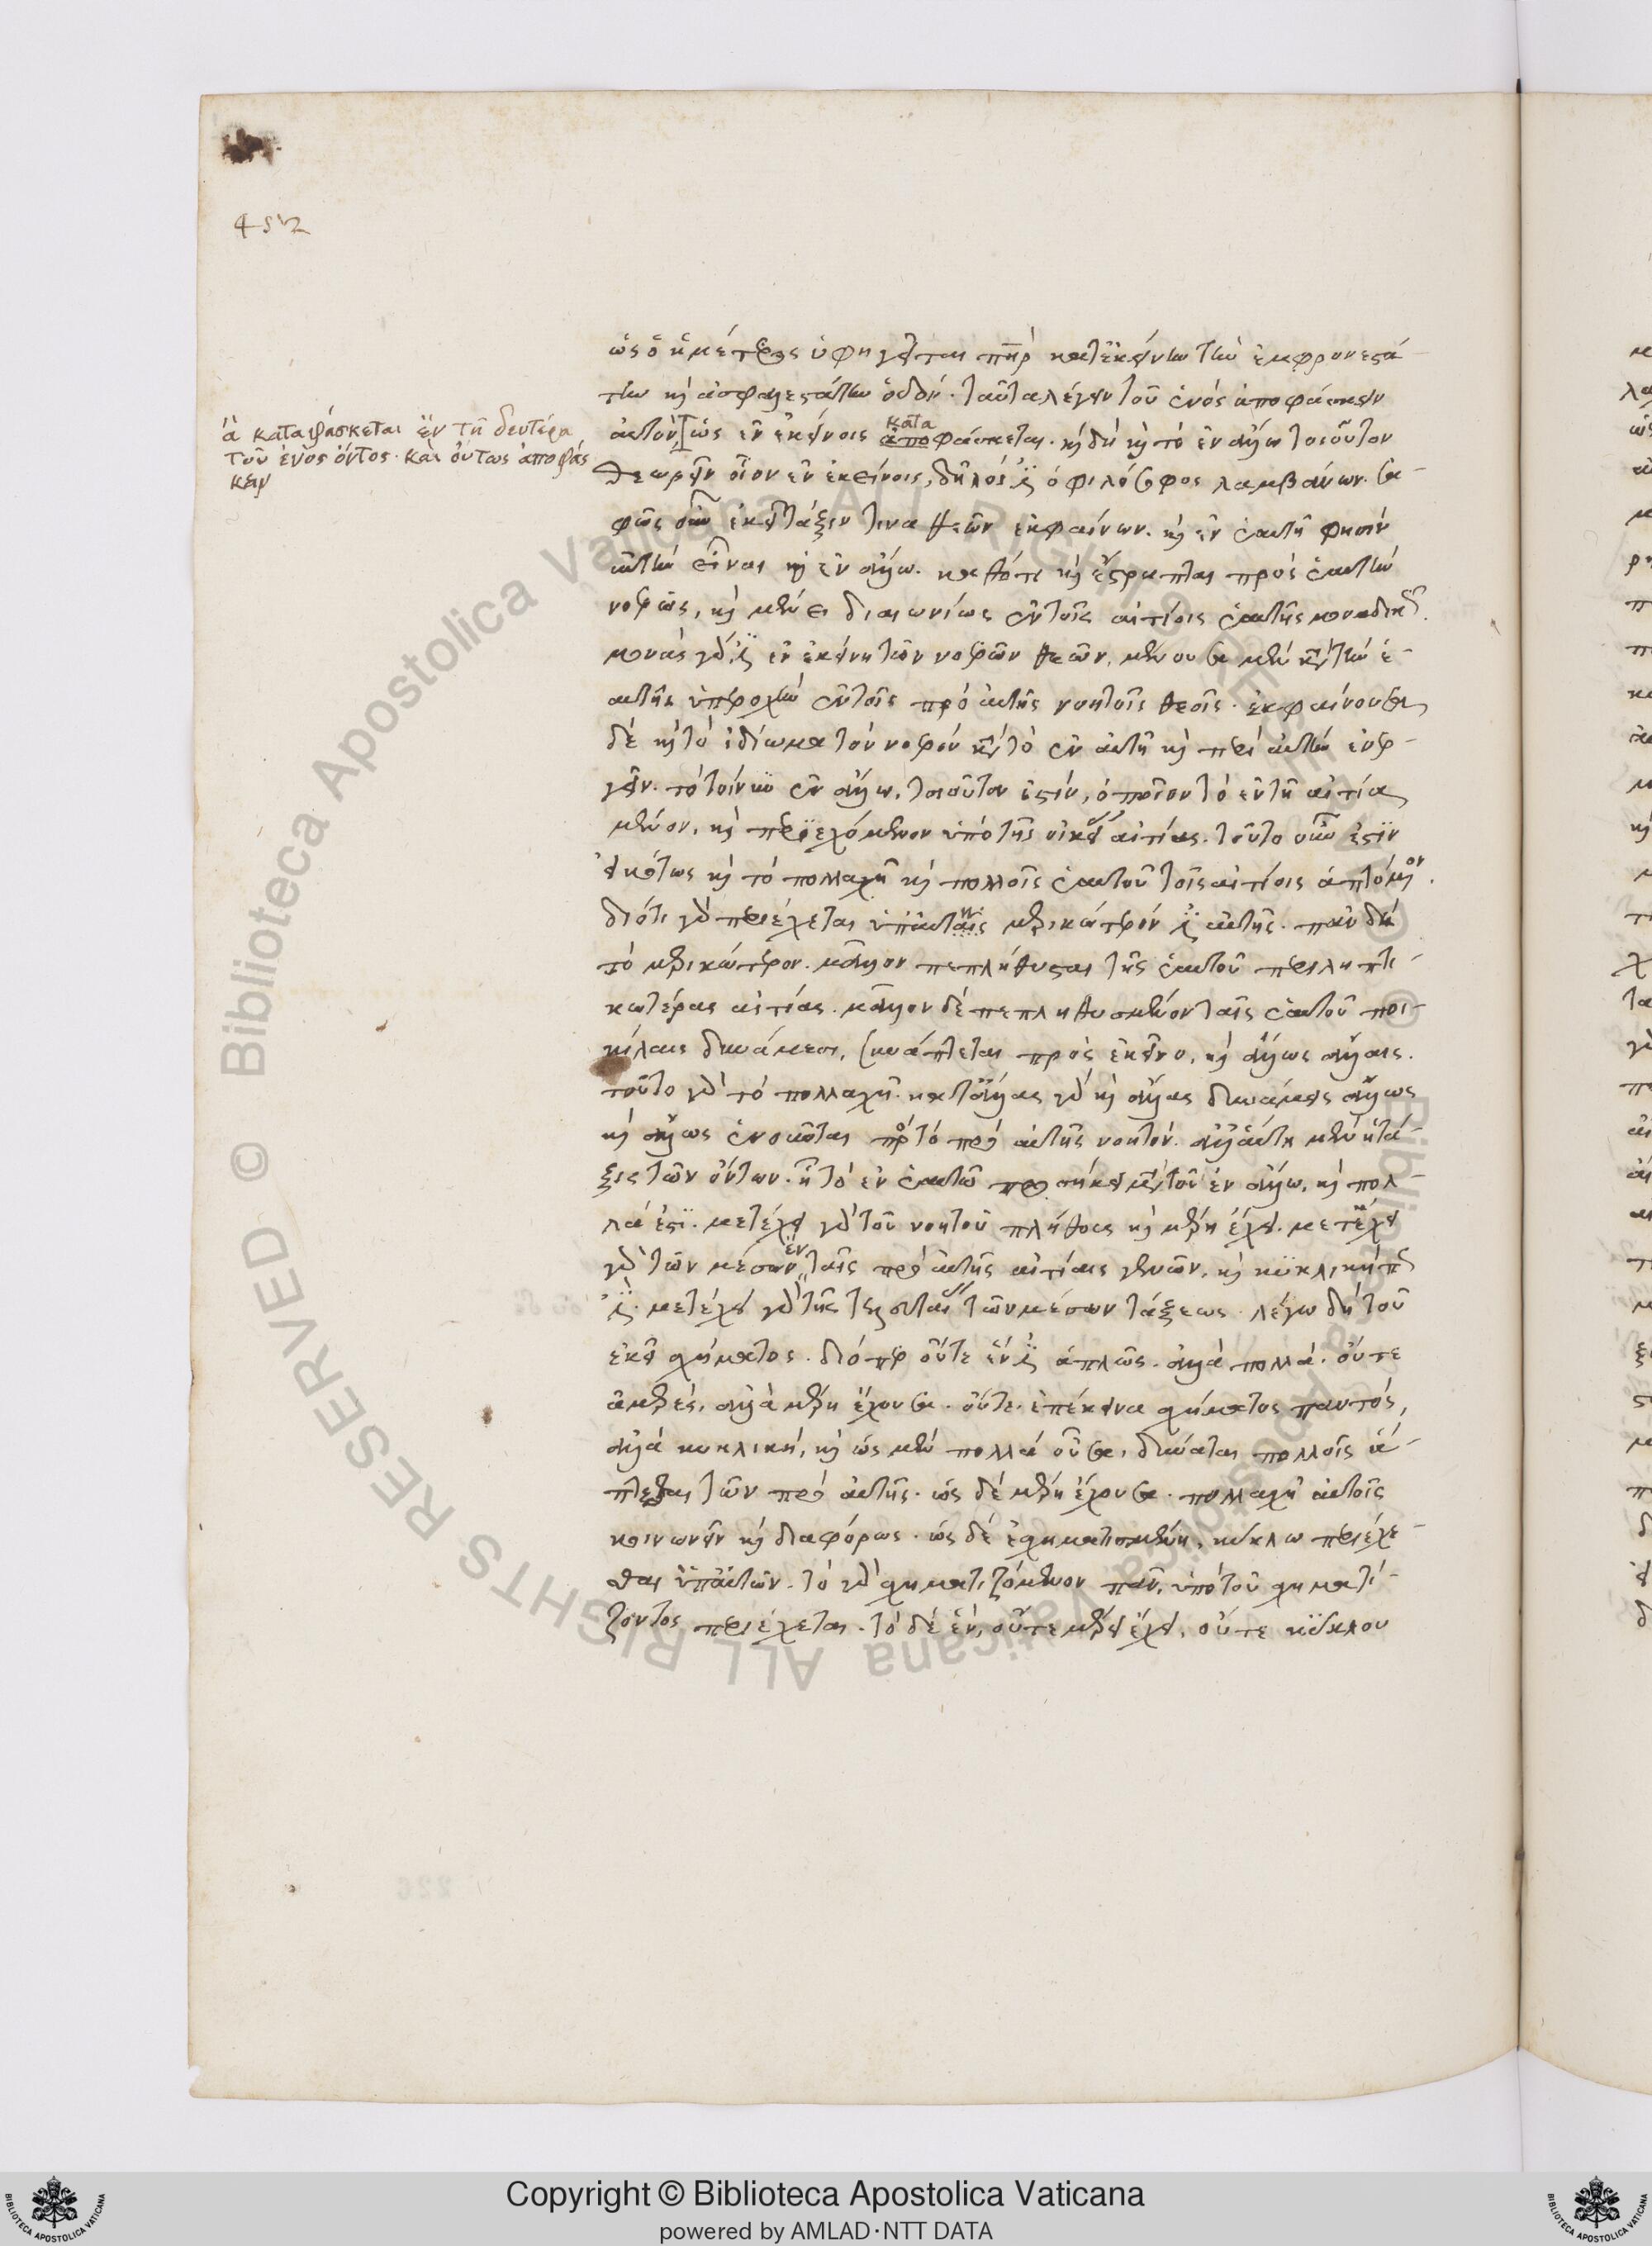 452
ἃ καταφάσκεται ἐν τῇ δευτέρα
τοῦ ἑνὸς ὄντος. καὶ οὕτως ἀποφάσ
κειν
ὡς ὁ ἡμέτερος ὑφηγεῖται πηρ κατ' ἐκείνην τὴν ἐμφρονεστά-
την καὶ ἀσφαλεστάτην ὁδόν. ταῦτα λέγειν τοῦ ἑνὸς ἀποφάσκειν
αὐτὸν ὡς ἐν ἐκείνοις αποφάσκεται. κατα καὶ δὴ καὶ τὸ ἐν ἄλλω τοιοῦτον
θεωρεῖν οἷον ἐν ἐκείνοις, δῆλός ἐστι ὁ φιλόσοφος λαμβάνων. σα-
φῶς οὖν ἐκεῖ τάξιν τινα θεῶν ἐκφαίνων. καὶ ἐν ἑαυτῆ φησὶν
αὐτὴν εἶναι καὶ ἐν ἄλλω. καθότι καὶ ἔστραπται πρὸς ἑαυτὴν
νοερῶς, καὶ μένει διαιωνίως ἐν τοῖς αἰτίοις ἑαυτῆς μοναδικῶς.
μονὰς γάρ ἐστι ἐν ἐκείνη τῶν νοερῶν θεῶν, μένουσα μὲν κατὰ τὴν ἑ-
αυτῆς ὑπεροχὴν ἐν τοῖς πρὸ αὐτῆς νοητοῖς θεοῖς. ἐκφαίνουσα
δὲ καὶ τὸ ἰδίωμα τὸν νοερὸν κατὰ τὸ ἐν αὐτῆ καὶ περὶ αὐτὴν ἐνερ-
γεῖν. τὸ τοίνυν ἐν ἄλλω, τοιοῦτον ἐστὶν, ὁποῖον τὸ ἐν τῆ αἰτία
μένον, καὶ περιεχόμενον ὑπὸ τῆς οἰκείας αἰτίας. τοῦτο οὖν ἐστὶν
εἰκότως καὶ τὸ πολλαχῆ καὶ πολλοῖς ἑαυτοῦ τοῖς αἰτίοις ἁπτόμενον.
διότι γὰρ περιέχεται ὑπ' αὐταῖς μερικώτερόν ἐστι αὐτῆς. πᾶν δὴ
τὸ μερικώτερον. μᾶλλον πεπλήθυσται τῆς ἑαυτοῦ περιληπτι-
κωτέρας αἰτίας. μᾶλλον δὲ πεπληθυσμένον ταῖς ἑαυτοῦ ποι-
κίλαις δυνάμεσι, συνάπτεται πρὸς ἐκεῖνο, καὶ ἄλλως ἄλλαις.
τοῦτο γὰρ τὸ πολλαχῆ. κατ' ἄλλας γὰρ καὶ ἄλλας δυνάμεις ἄλλως
καὶ ἄλλως ἑνοῦται πρὸς τὸ πρὸ αὐτῆς νοητόν. ἀλλ' αὕτη μὲν ἡ τά-
ξις τῶν ὄντων. ἧ τὸ ἐν ἑαυτῶ προσήκει μετὰ τοῦ ἐν ἄλλω, καὶ πολ-
λά ἐστι. μετέχει γὰρ τοῦ νοητοῦ πλήθους καὶ μέρη ἔχει. μετέχει
γὰρ τῶν μέσων ἐν ταῖς πρὸ αὐτῆς αἰτίαις γενῶν, καὶ κυκλική πώς
ἐστι. μετέχει γὰρ τῆς τελευταίας τῶν μέσων τάξεως. λέγω δὴ τοῦ
ἐκεῖ σχήματος. διόπερ οὔτε ἕν ἐστι ἁπλῶς. ἀλλὰ πολλά. οὔτε
ἀμερές, ἀλλὰ μέρη ἔχουσα. οὔτε ἐπέκεινα σχήματος παντός,
ἀλλὰ κυκλική, καὶ ὡς μὲν πολλὰ οὖσα, δύναται πολλοῖς ἅ-
πτεσθαι τῶν πρὸ αὐτῆς. ὡς δὲ μέρη ἔχουσα. πολλαχῆ αὐτοῖς
κοινωνεῖν καὶ διαφόρως. ὡς δὲ ἐσχηματισμένη, κύκλω περιέχε-
σθαι ὑπ' αὐτῶν. τὸ γὰρ σχηματιζόμενον πᾶν, ὑπὸ τοῦ σχηματί-
ζοντος περιέχεται. τὸ δὲ ἓν, οὔτε μέρει ἔχει, οὔτε κύκλου